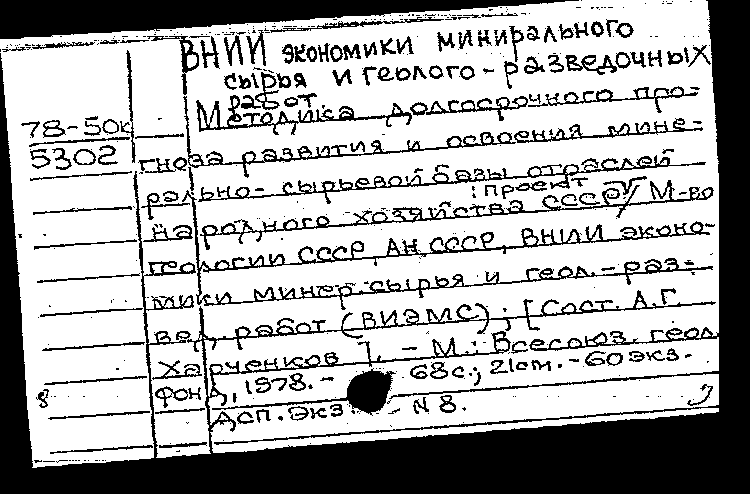 ВНИИ экономики минирального
сырья и геолого-разведочных
работ.
78-50к
5302
Методика долгосрочного про=
гноза развития и освоения мине=
рально-сырьевой базы отраслей
: проект
народного хозяйства СССР / М-во
геологии СССР, АН СССР, ВНИИ эконо-
мики минер. сырья и геол.-раз=
вед. работ (ВИЭМС); [Сост. А.Г.
Харченков]. - М.: Всесоюз. геол.
фонд, 1978. - 68с.; 21см. - 60экз.
Дсп. Экз. - N 8.
8